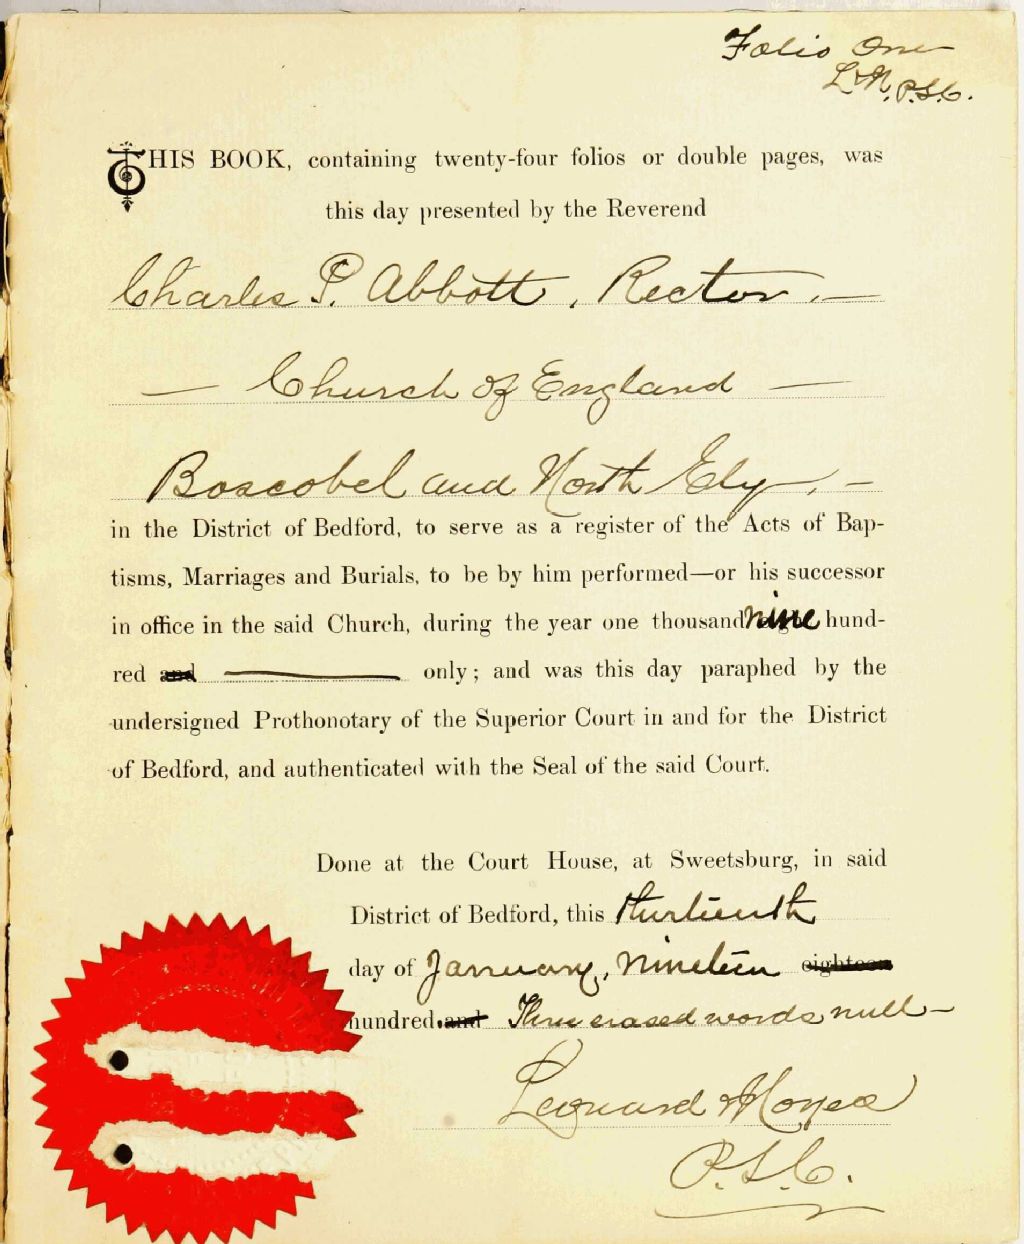 Folio One
L&N. P.S.C.
THIS BOOK, containing twenty-four folios or double pages, was
this day presented by the Reverend
Charles P. Abbott, Rector, —
— Church of England —
Boscobel and North Ely, —
in the District of Bedford, to serve as a register of the Acts of Bap-
tisms, Marriages and Burials, to be by him performed—or his successor
in office in the said Church, during the year one thousand nine hund-
red and ——— only; and was this day paraphed by the
undersigned Prothonotary of the Superior Court in and for the District
of Bedford, and authenticated with the Seal of the said Court.
Done at the Court House, at Sweetsburg, in said
District of Bedford, this thirteenth
day of January, nineteen eighteen
hundred and Three erased words null —
Leonard & Noyes
P.S.C.